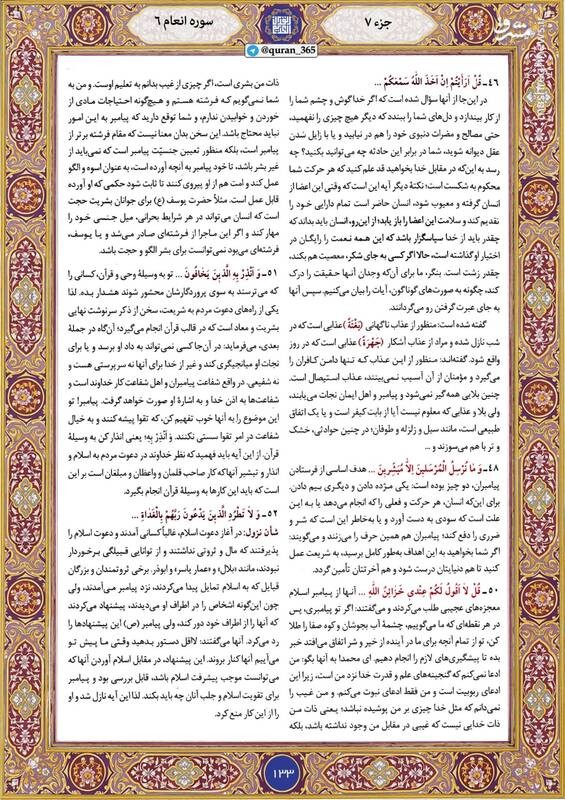 جزء ۷
سوره انعام ۶
@quran_365
مشرق
۴۶ـ قُلْ اَرَاَیْتُمْ اِنْ اَخَذَ اللّٰهُ سَمْعَکُمْ ...
در این‌جا از آنها سؤال شده است که اگر خدا گوش و چشم شما را
از کار بیندازد و دل‌های شما را ببندد که دیگر هیچ چیزی را نفهمید،
حتی مصالح و مضرات دنیوی خود را هم در نیابید و یا با زایل شدن
عقل دیوانه شوید، شما در برابر این حادثه چه می‌توانید بکنید؟ چه
رسد به این‌که در مقابل خدا بخواهید قد علم کنید که هر حرکت شما
محکوم به شکست است؛ نکتهٔ دیگر آیه این است که وقتی این اعضا از
انسان گرفته و معیوب شود، انسان حاضر است تمام دارایی خود را
تقدیم کند و سلامت این اعضا را باز یابد؛ از این‌رو، انسان باید بداند که
چقدر باید از خدا سپاسگزار باشد که این همه نعمت را رایگان در
اختیار او گذاشته است، حالا اگر کسی به جای شکر، معصیت هم بکند،
چقدر زشت است. بنگر، ما برای آن‌که وجدان آنها حقیقت را درک
کند، چگونه به صورت‌های گوناگون، آیات را بیان می‌کنیم. سپس آنها
به جای عبرت گرفتن رو می‌گردانند.
گفته شده است: منظور از عذاب ناگهانی (بَغْتَةً) عذابی است که در
شب نازل شده و مراد از عذاب آشکار (جَهْرَةً) عذابی است که در روز
واقع شود. گفته‌اند: منظور از این عذاب که تنها دامن کافران را
می‌گیرد و مؤمنان از آن آسیب نمی‌بینند، عذاب استیصال است.
چنین بلایی همه گیر نمی‌شود و پیامبر و اهل ایمان نجات می‌یابند،
ولی بلا و عذابی که معلوم نیست آیا از بابت کیفر است و یا یک اتفاق
طبیعی است، مانند سیل و زلزله و طوفان؛ در چنین حوادثی، خشک
و تر با هم می‌سوزند و ...
۴۸ـ وَ مٰا نُرْسِلُ الْمُرْسَلینَ اِلّاٰ مُبَشِّرینَ ... هدف اساسی از فرستادن
پیامبران، دو چیز بوده است: یکی مژده دادن و دیگری بیم دادن.
برای این‌که انسان، هر حرکت و فعلی را که انجام می‌دهد یا به این
علت است که سودی به دست آورد و یا به‌خاطر این است که شر و
ضرری را دفع کند؛ پیامبران هم همین حرف را می‌زنند و می‌گویند:
اگر شما بخواهید به این اهداف به‌طور کامل برسید، به شریعت عمل
کنید تا هم دنیایتان درست شود و هم آخرتتان تأمین گردد.
۵۰ـ قُلْ لٰا اَقُولُ لَکُمْ عِنْدی خَزٰائِنُ اللّٰهِ ... آنها از پیامبر اسلام
معجزه‌های عجیبی طلب می‌کردند و می‌گفتند: اگر تو پیامبری، پس
در هر نقطه‌ای که ما می‌گوییم، چشمهٔ آب بجوشان و کوه صفا را طلا
کن، تو از تمام آنچه برای ما در آینده از خیر و شر اتفاق می‌افتد خبر
بده تا پیشگیری‌های لازم را انجام دهیم. ای محمد! به آنها بگو: من
ادعا نمی‌کنم که گنجینه‌های علم و قدرت خدا نزد من است، زیرا این
ادعای ربوبیت است و من فقط ادعای نبوت می‌کنم. و من غیب را
نمی‌دانم که مثل خدا چیزی بر من پوشیده نباشد؛ یعنی ذات من
ذات خدایی نیست که غیبی در مقابل من وجود نداشته باشد، بلکه
ذات من بشری است، اگر چیزی از غیب بدانم به تعلیم اوست. و من به
شما نمی‌گویم که فرشته هستم و هیچ‌گونه احتیاجات مادی از
خوردن و خوابیدن ندارم، و شما توقع دارید که پیامبر به این امور
نباید محتاج باشد. این سخن بدان معنا نیست که مقام فرشته برتر از
پیامبر است، بلکه منظور تعیین جنسیّت پیامبر است که نمی‌باید از
غیر بشر باشد، تا خود پیامبر به آنچه آورده است، به عنوان اسوه و الگو
عمل کند و امت هم از او پیروی کنند تا ثابت شود حکمی که او آورده
قابل عمل است. مثلاً حضرت یوسف (ع) برای جوانان بشریت حجت
است که انسان می‌تواند در هر شرایط بحرانی، میل جنسی خود را
مهار کند و اگر این ماجرا از فرشته‌ای صادر می‌شد و یا یوسف،
فرشته‌ای می‌بود نمی‌توانست برای بشر الگو و حجت باشد.
۵۱ـ وَ اَنْذِرْ بِهِ الَّذینَ یَخٰافُونَ ... تو به وسیلهٔ وحی و قرآن، کسانی را
که می‌ترسند به سوی پروردگارشان محشور شوند هشدار بده. لذا
یکی از راه‌های دعوت مردم به شریعت، سخن از ذکر سرنوشت نهایی
بشریت و معاد است که در قالب قرآن انجام می‌گیرد؛ آن‌گاه در جملهٔ
بعدی، می‌فرماید: در آن‌جا کسی نمی‌تواند به داد او برسد و یا برای
نجات او میانجیگری کند و غیر از خدا برای آنها نه سرپرستی هست و
نه شفیعی. در واقع شفاعت پیامبران و اهل شفاعت کار خداوند است و
شفاعت‌ها به اذن خدا و به اشارهٔ او صورت خواهد گرفت. پیامبر! تو
این موضوع را به آنها خوب تفهیم کن، که تقوا پیشه کنند و به خیال
شفاعت در امر تقوا سستی نکنند. وَ اَنْذِرْ بِهِ؛ یعنی انذار کن به وسیلهٔ
قرآن. از این آیه باید فهمید که نظر خداوند در دعوت مردم به اسلام و
انذار و تبشیر آنها که کار صاحب قلمان و واعظان و مبلغان است بر این
است که باید این کارها به وسیلهٔ قرآن انجام بگیرد.
۵۲ـ وَ لٰا تَطْرُدِ الَّذینَ یَدْعُونَ رَبَّهُمْ بِالْغَدٰاةِ ...
شأن نزول: در آغاز دعوت اسلام، غالباً کسانی آمدند و دعوت اسلام را
پذیرفتند که مال و ثروتی نداشتند و از توانایی قبیلگی برخوردار
نبودند، مانند «بلال» و «عمار یاسر» و ابوذر. برخی ثروتمندان و بزرگان
قبایل که به اسلام تمایل پیدا می‌کردند، نزد پیامبر می‌آمدند، ولی
چون این‌گونه اشخاص را در اطراف او می‌دیدند، پیشنهاد می‌کردند
که آنها را از اطراف خود دور کند، ولی پیامبر (ص) این پیشنهادها را
رد می‌کرد. آنها می‌گفتند: لااقل دستور بدهید وقتی ما پیش تو
می‌آییم آنها کنار بروند. این پیشنهاد، در مقابل اسلام آوردن آنها که
می‌توانست موجب پیشرفت اسلام باشد، قابل بررسی بود و پیامبر
برای تقویت اسلام و جلب آنان چه باید بکند. لذا این آیه نازل شد و او
را از این کار منع کرد.
۱۳۳